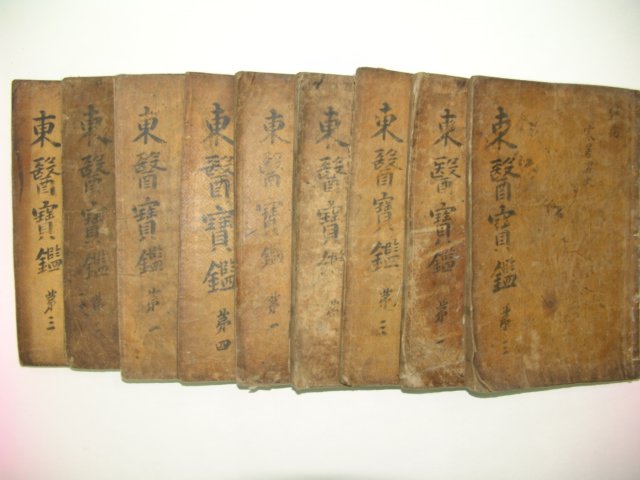 東醫寶鑑 第三
東醫寶鑑 第二
東醫寶鑑 第一
東醫寶鑑 第四
東醫寶鑑 第一
東醫寶鑑 第
東醫寶鑑 第三
東醫寶鑑 第一
東醫寶鑑 第三